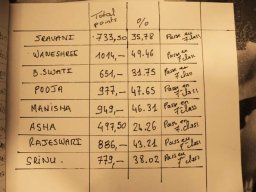 Total points %
SRAVANI 733,50 35,78 Pass en 7 class
WANESHREE 1014,— 49.46 Pass en 7 class
B.SWATI 651,— 31.75 Pass en 7 class
POOJA 977,— 47.65 Pass en 7 class
MANISHA 949,— 46.31 Pass en 7 class
ASHA 497,50 24.26 Pass en 7 class
RAJESWARI 886,— 43.21 Pass en 7 class
SRINU. 779,— 38.02 Pass en 7 class